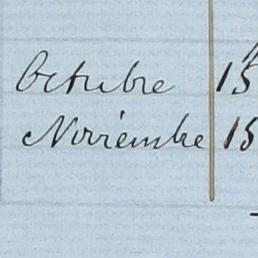 Octubre 15
Noviémbre 15